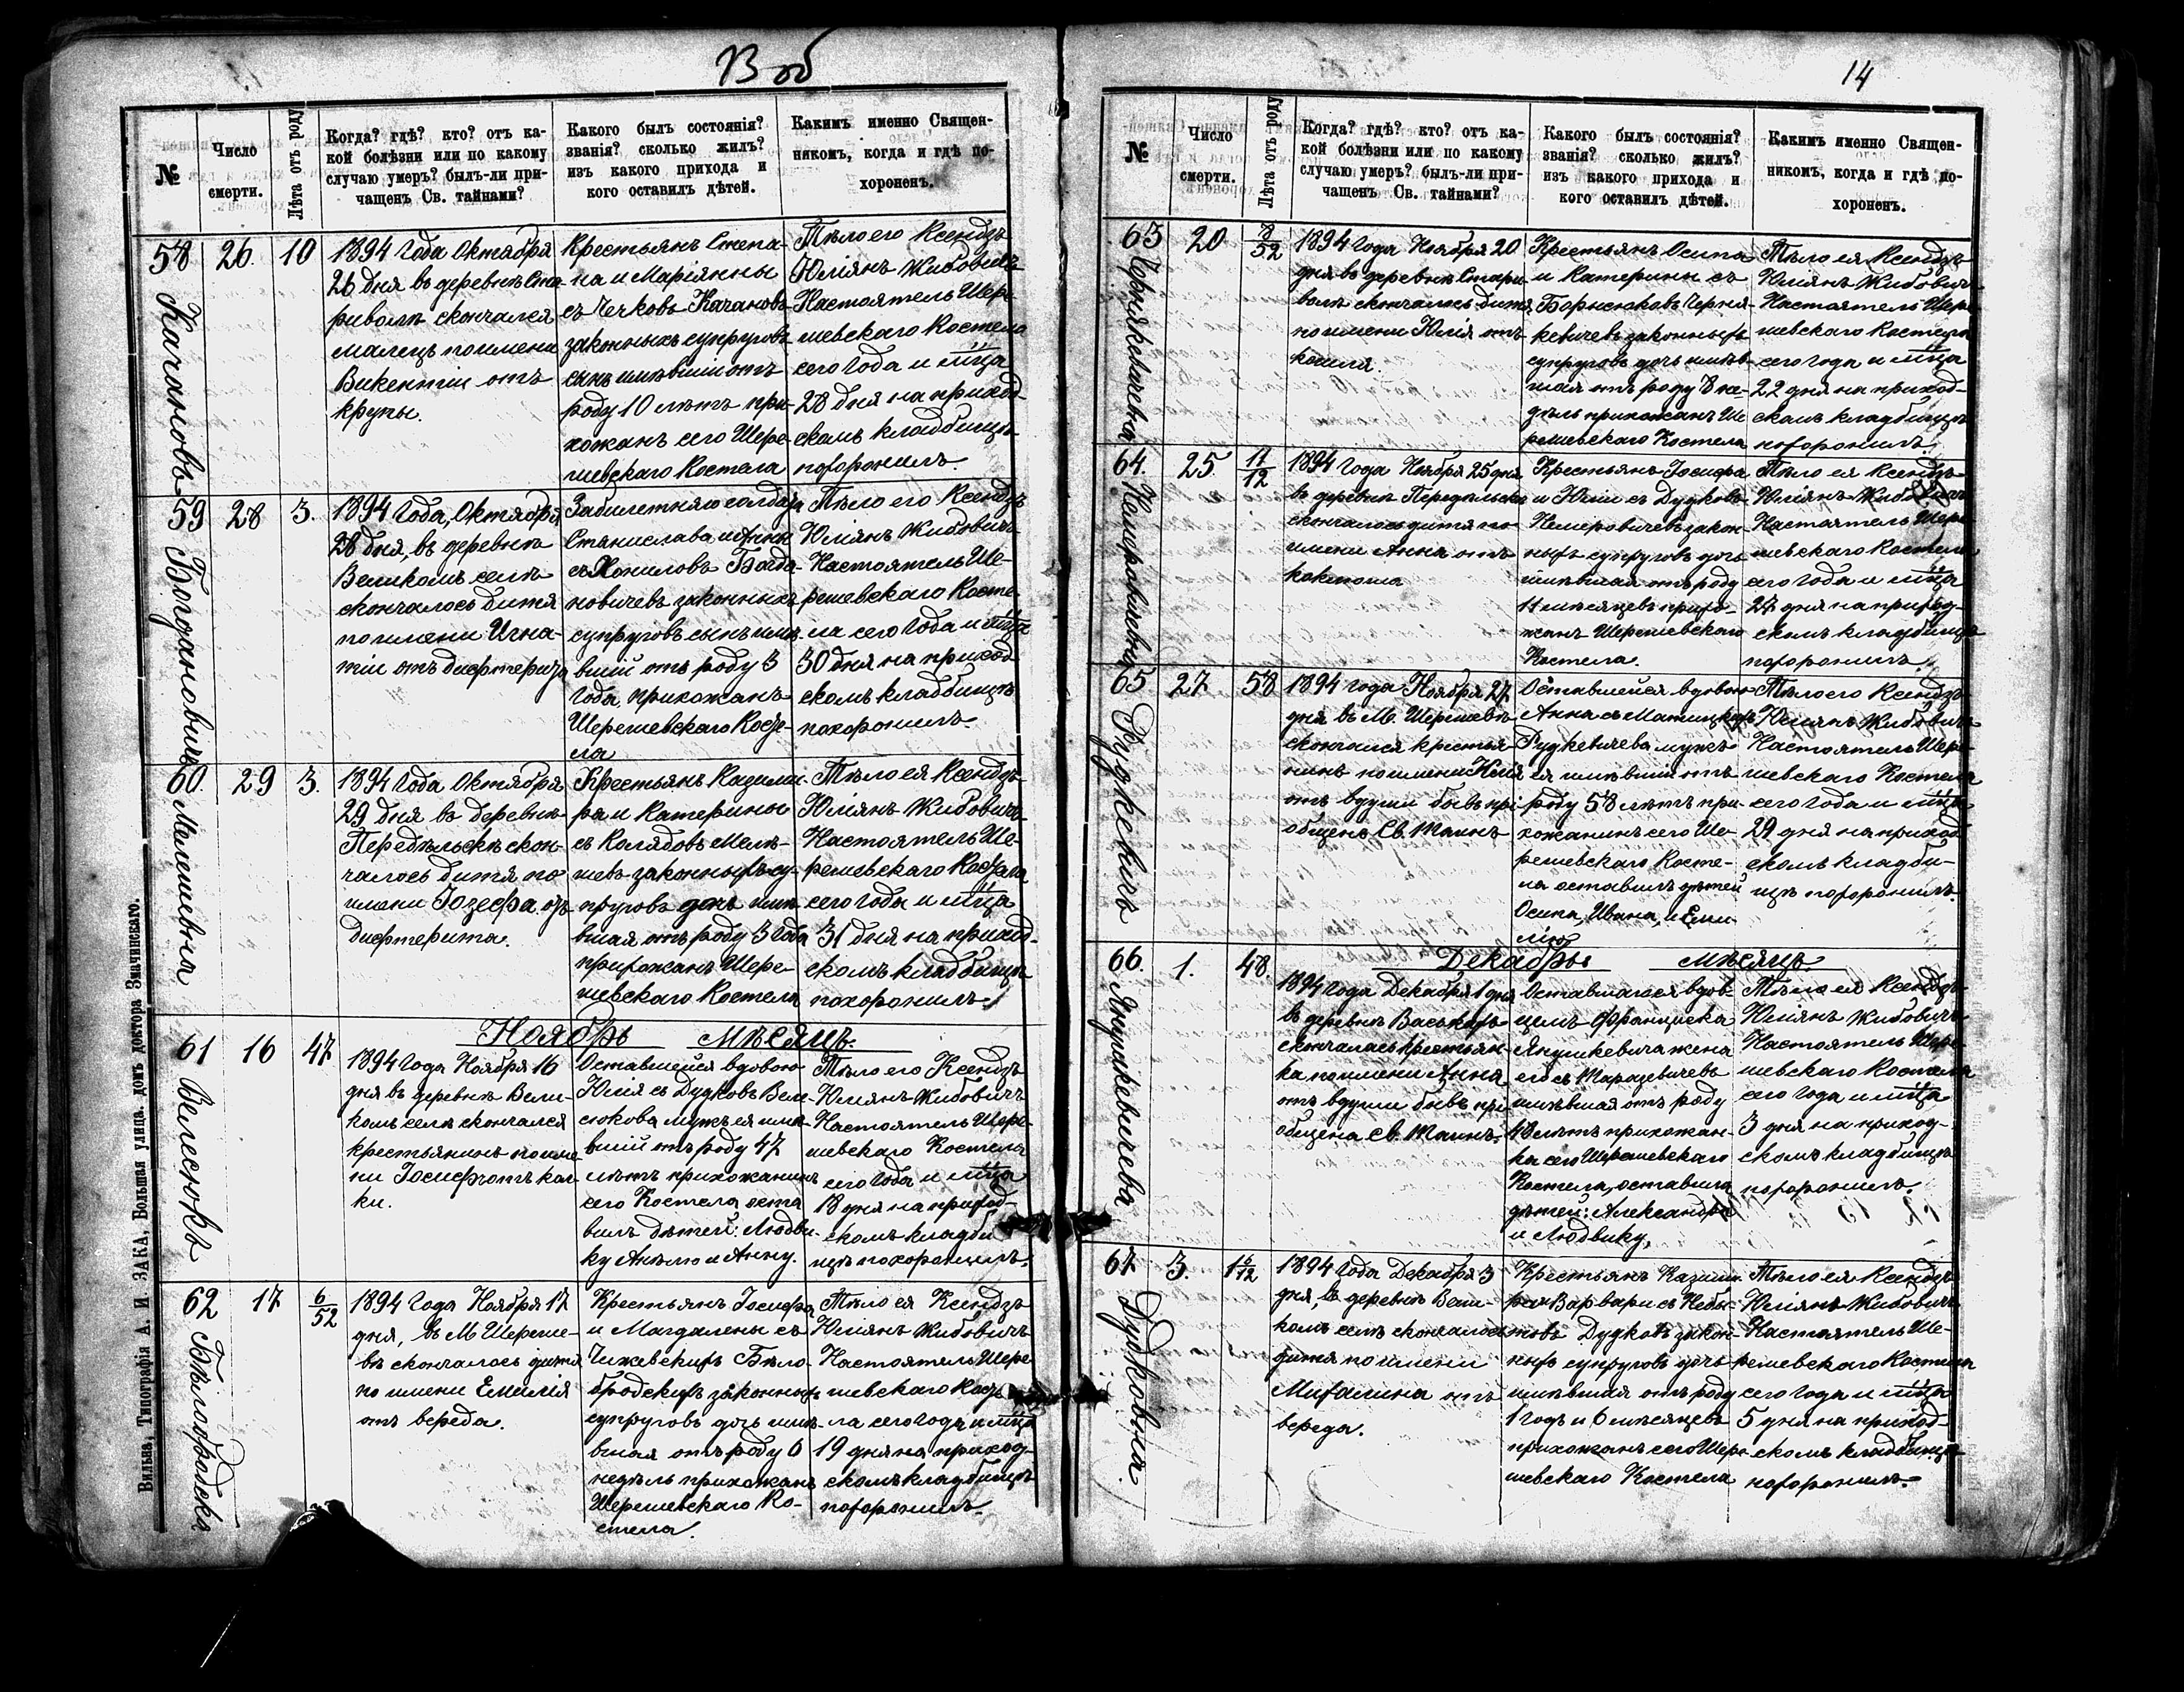 13 об
№
Число
смерти.
Лѣта отъ роду
Когда? гдѣ? кто? отъ ка-
кой болѣзни или по какому
случаю умеръ? былъ-ли при-
чащенъ Св. тайнами?
Какого былъ состоянія?
званія? сколько жилъ?
изъ какого прихода и
кого оставилъ дѣтей.
Какимъ именно Священ-
никомъ, когда и гдѣ по-
хороненъ.
58
Качановъ
26.
10
1894 Года Октября
26 дня въ деревнѣ Ста-
риволѣ скончался
малецъ по имени
Викентій отъ
крупы.
Крестьянъ Степа-
на и Маріянны
съ Чечковъ Качановъ
законныхъ супруговъ
сынъ имѣвшій отъ
роду 10 лѣтъ при-
хожанъ сего Шере-
шевскаго Костела
Тѣло его Ксендзъ
Юліянъ Жибовичъ
Настоятель Шере-
шевскаго Костела
сего Года и мѣца
28 дня на приход-
скомъ кладбищѣ
похоронилъ.
59
Богдановичъ
28
3.
1894 Года, Октября
28 дня, въ деревнѣ
Великомъ селѣ
скончалось дитя
по имени Игна-
тій отъ дифтерита
Забилетняго солдата
Станислава и Анны
съ Хониловъ Богда-
новичевъ законныхъ
супруговъ сынъ имѣ-
вшій отъ роду 3
Года, прихожанъ
Шерешевскаго Косте-
ла
Тѣло его Ксендзъ
Юліянъ Жибовичъ
Настоятель Ше-
решевскаго Косте-
ла сего Года и мѣца
30 дня на приход-
скомъ кладбищѣ
похоронилъ.
60.
Мелешевна
29
3.
1894 Года Октября
29 дня въ деревнѣ
Передѣльскѣ скон-
чалось дитя по
имени Іозефа отъ
дифтерита.
Крестьянъ Казими-
ра и Катерины
съ Колядовъ Меле-
шевъ законныхъ су-
пруговъ дочь имѣ-
вшая отъ роду 3 Года
прихожанъ Шере-
шевскаго Костела
Тѣло ея Ксендзъ
Юліянъ Жибовичъ
Настоятель Ше-
решевскаго Костела
сего Года и мѣца
31 дня на приход-
скомъ кладбищѣ
похоронилъ.
Ноябрь Мѣсяцъ.
61
Велесюкъ
16
47
1894 Года Ноября 16
дня въ деревнѣ Вели-
комъ селѣ скончался
крестьянинъ по име-
ни Іосифъ отъ кол-
ки.
Оставшейся вдовою
Юлія съ Дудковъ Веле-
сюкова мужъ ея имѣ-
вшій отъ роду 47
лѣтъ прихожанинъ
сего Костела оста-
вилъ дѣтей: Людви-
ку Анѣлю и Анну.
Тѣло его Ксендзъ
Юліянъ Жибовичъ
Настоятель Шере-
шевскаго Костела
сего Года и мѣца
18 дня на приход-
скомъ кладби-
щѣ похоронилъ.
62
Бѣлобродска
17
6/52
1894 Года Ноября 17
дня, въ М. Шереше-
вѣ скончалось дитя
по имени Емилія
отъ вереда.
Крестьянъ Іосифа
и Магдалены съ
Чижевскихъ Бѣло-
бродскихъ законныхъ
супруговъ дочь имѣ-
вшая отъ роду 6
недѣль прихожанъ
Шерешевскаго Ко-
стела.
Тѣло ея Ксендзъ
Юліянъ Жибовичъ
Настоятель Шере-
шевскаго Косте-
ла сего Года и мѣца
19 дня на приход-
скомъ кладбищѣ
похоронилъ.
Вильна, Типографія А. И. ЗАКА, Большая улица, домъ доктора Змачинскаго.
14
№
Число
смерти.
Лѣта отъ роду
Когда? гдѣ? кто? отъ ка-
кой болѣзни или по какому
случаю умеръ? былъ-ли при-
чащенъ Св. тайнами?
Какого былъ состоянія?
званія? сколько жилъ?
изъ какого прихода и
кого оставилъ дѣтей.
Какимъ именно Священ-
никомъ, когда и гдѣ по-
хороненъ.
63
Чернякевичевна
20
8/52
1894 Года Ноября 20
дня въ деревнѣ Стари-
волѣ скончалось дитя
по имени Юлія отъ
кошля.
Крестьянъ Осипа
и Катерины съ
Борисюковъ Черня-
кевичевъ законныхъ
супруговъ дочь имѣв-
шая отъ роду 8 не-
дѣль прихожанъ Ше-
решевскаго Костела
Тѣло ея Ксендзъ
Юліянъ Жибовичъ
Настоятель Шере-
шевскаго Костела
сего Года и мѣца
22 дня на приход-
скомъ кладбищѣ
похоронилъ.
64.
Немировичевна
25.
11/12
1894 Года Ноября 25 дня
въ деревнѣ Передѣльскѣ
скончалось дитя по
имени Анна отъ
коклюша
Крестьянъ Іосифа
и Юлии съ Дудковъ
Немировичевъ закон-
ныхъ супруговъ дочь
имѣвшая отъ роду
11 мѣсяцевъ прихо-
жанъ Шерешевскаго
Костела.
Тѣло ея Ксендзъ
Юліянъ Жибовичъ
Настоятель Шере-
шевскаго Костела
сего Года и мѣца
27 дня на приход-
скомъ кладбищѣ
похоронилъ.
65
Рудкевичъ
27
58
1894 года Ноября 27
дня въ М. Шерешевѣ
скончался крестья-
нинъ по имени
отъ вдуши бывъ прі-
общенъ Св. Таинъ
Оставшейся вдовою
Анна съ
Рудкевичева мужъ
ея имѣвшій отъ
роду 58 лѣтъ при-
хожанинъ сего Ше-
решевскаго Косте-
ла оставилъ дѣтей
Осипа, Ивана, и Еми-
лію
Тѣло его Ксендзъ
Юліянъ Жибовичъ
Настоятель Шере-
шевскаго Костела
сего Года и мѣца
29 дня на приход-
скомъ кладби-
щѣ похоронилъ.
Декабрь мѣсяцъ.
66.
Янушкевичева
1.
48.
1894 года Декабря 1 дня
въ деревнѣ Васькахъ
скончалась крестьян-
ка по имени Анна
отъ вдуши бывъ прі-
общена Св. Таинъ.
Оставшагося вдов-
цемъ Франциска
Янушкевича жена
его съ Тарасевичевъ
имѣвшая отъ роду
48 лѣтъ прихожан-
ка сего Шерешевскаго
Костела, оставила
дѣтей: Александра
и Людвику,
Тѣло ея Ксендзъ
Юліянъ Жибовичъ
Настоятель Шере-
шевскаго Костела
сего Года и мѣца
3 дня на приход-
скомъ кладбищѣ
похоронилъ.
67
Дудковна
3.
1 6/12
1894 Года Декабря 3
дня, въ деревнѣ Вели-
комъ селѣ скончалось
дитя по имени
Михалина отъ
вереда.
Крестьянъ Казими-
ра и Варвары съ
Дудковъ закон-
ныхъ супруговъ дочь
имѣвшая отъ роду
1 годъ и 6 мѣсяцевъ
прихожанъ сего Шере-
шевскаго Костела
Тѣло ея Ксендзъ
Юліянъ Жибовичъ
Настоятель Ше-
решевскаго Костела
сего Года и мѣца
5 дня на приход-
скомъ кладбищѣ
похоронилъ.